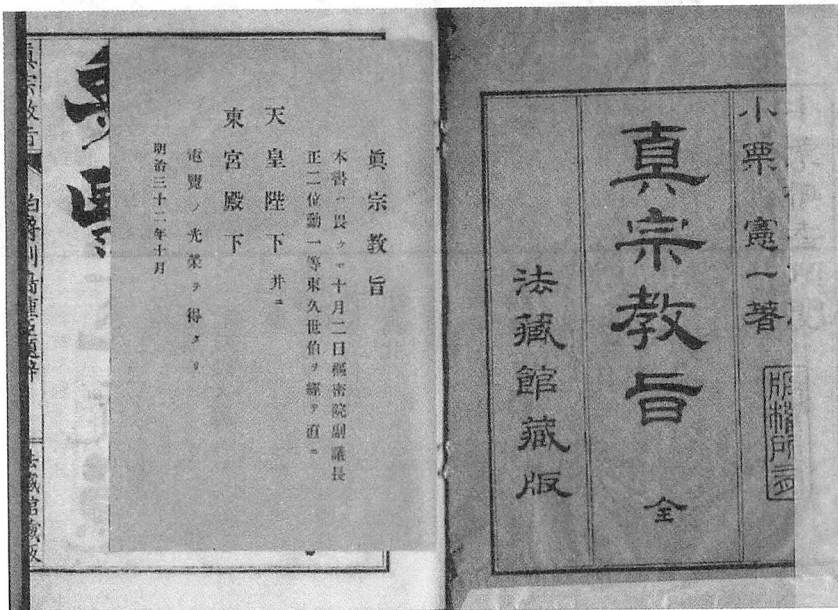 小栗憲一著
版権所有
真宗教旨 全
法藏館藏版
眞宗教旨
本書ハ畏クモ十月二日樞密院副議長
正二位勳一等東久世伯ヲ經テ直ニ
天皇陛下并ニ
東宮殿下
電覽ノ光榮ヲ得タリ
明治三十二年十月
眞宗教旨
法藏館藏版